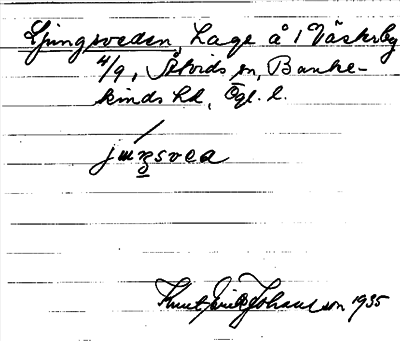 Ljungsveden, hage å 1 Västerby
4/9, Åtvids sn, Banke-
kinds hd, Ögl. l.
juŋsvea
Knut Erik Johansson 1935